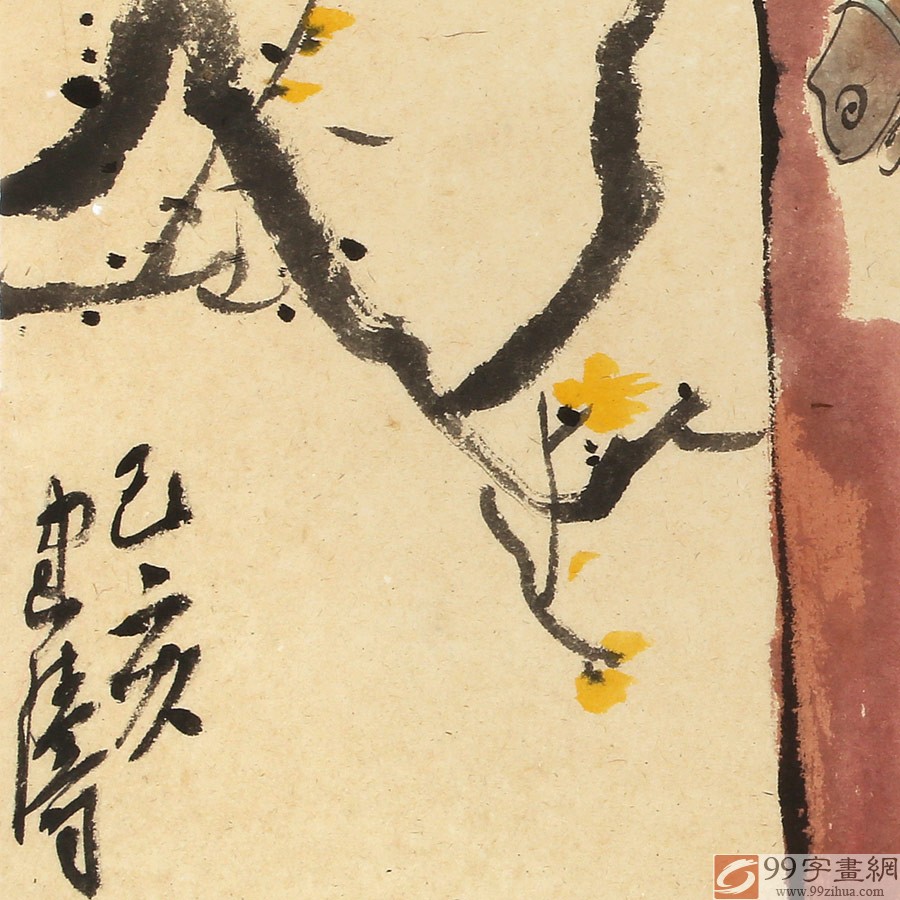 己亥
99字畫網
www.99zihua.com